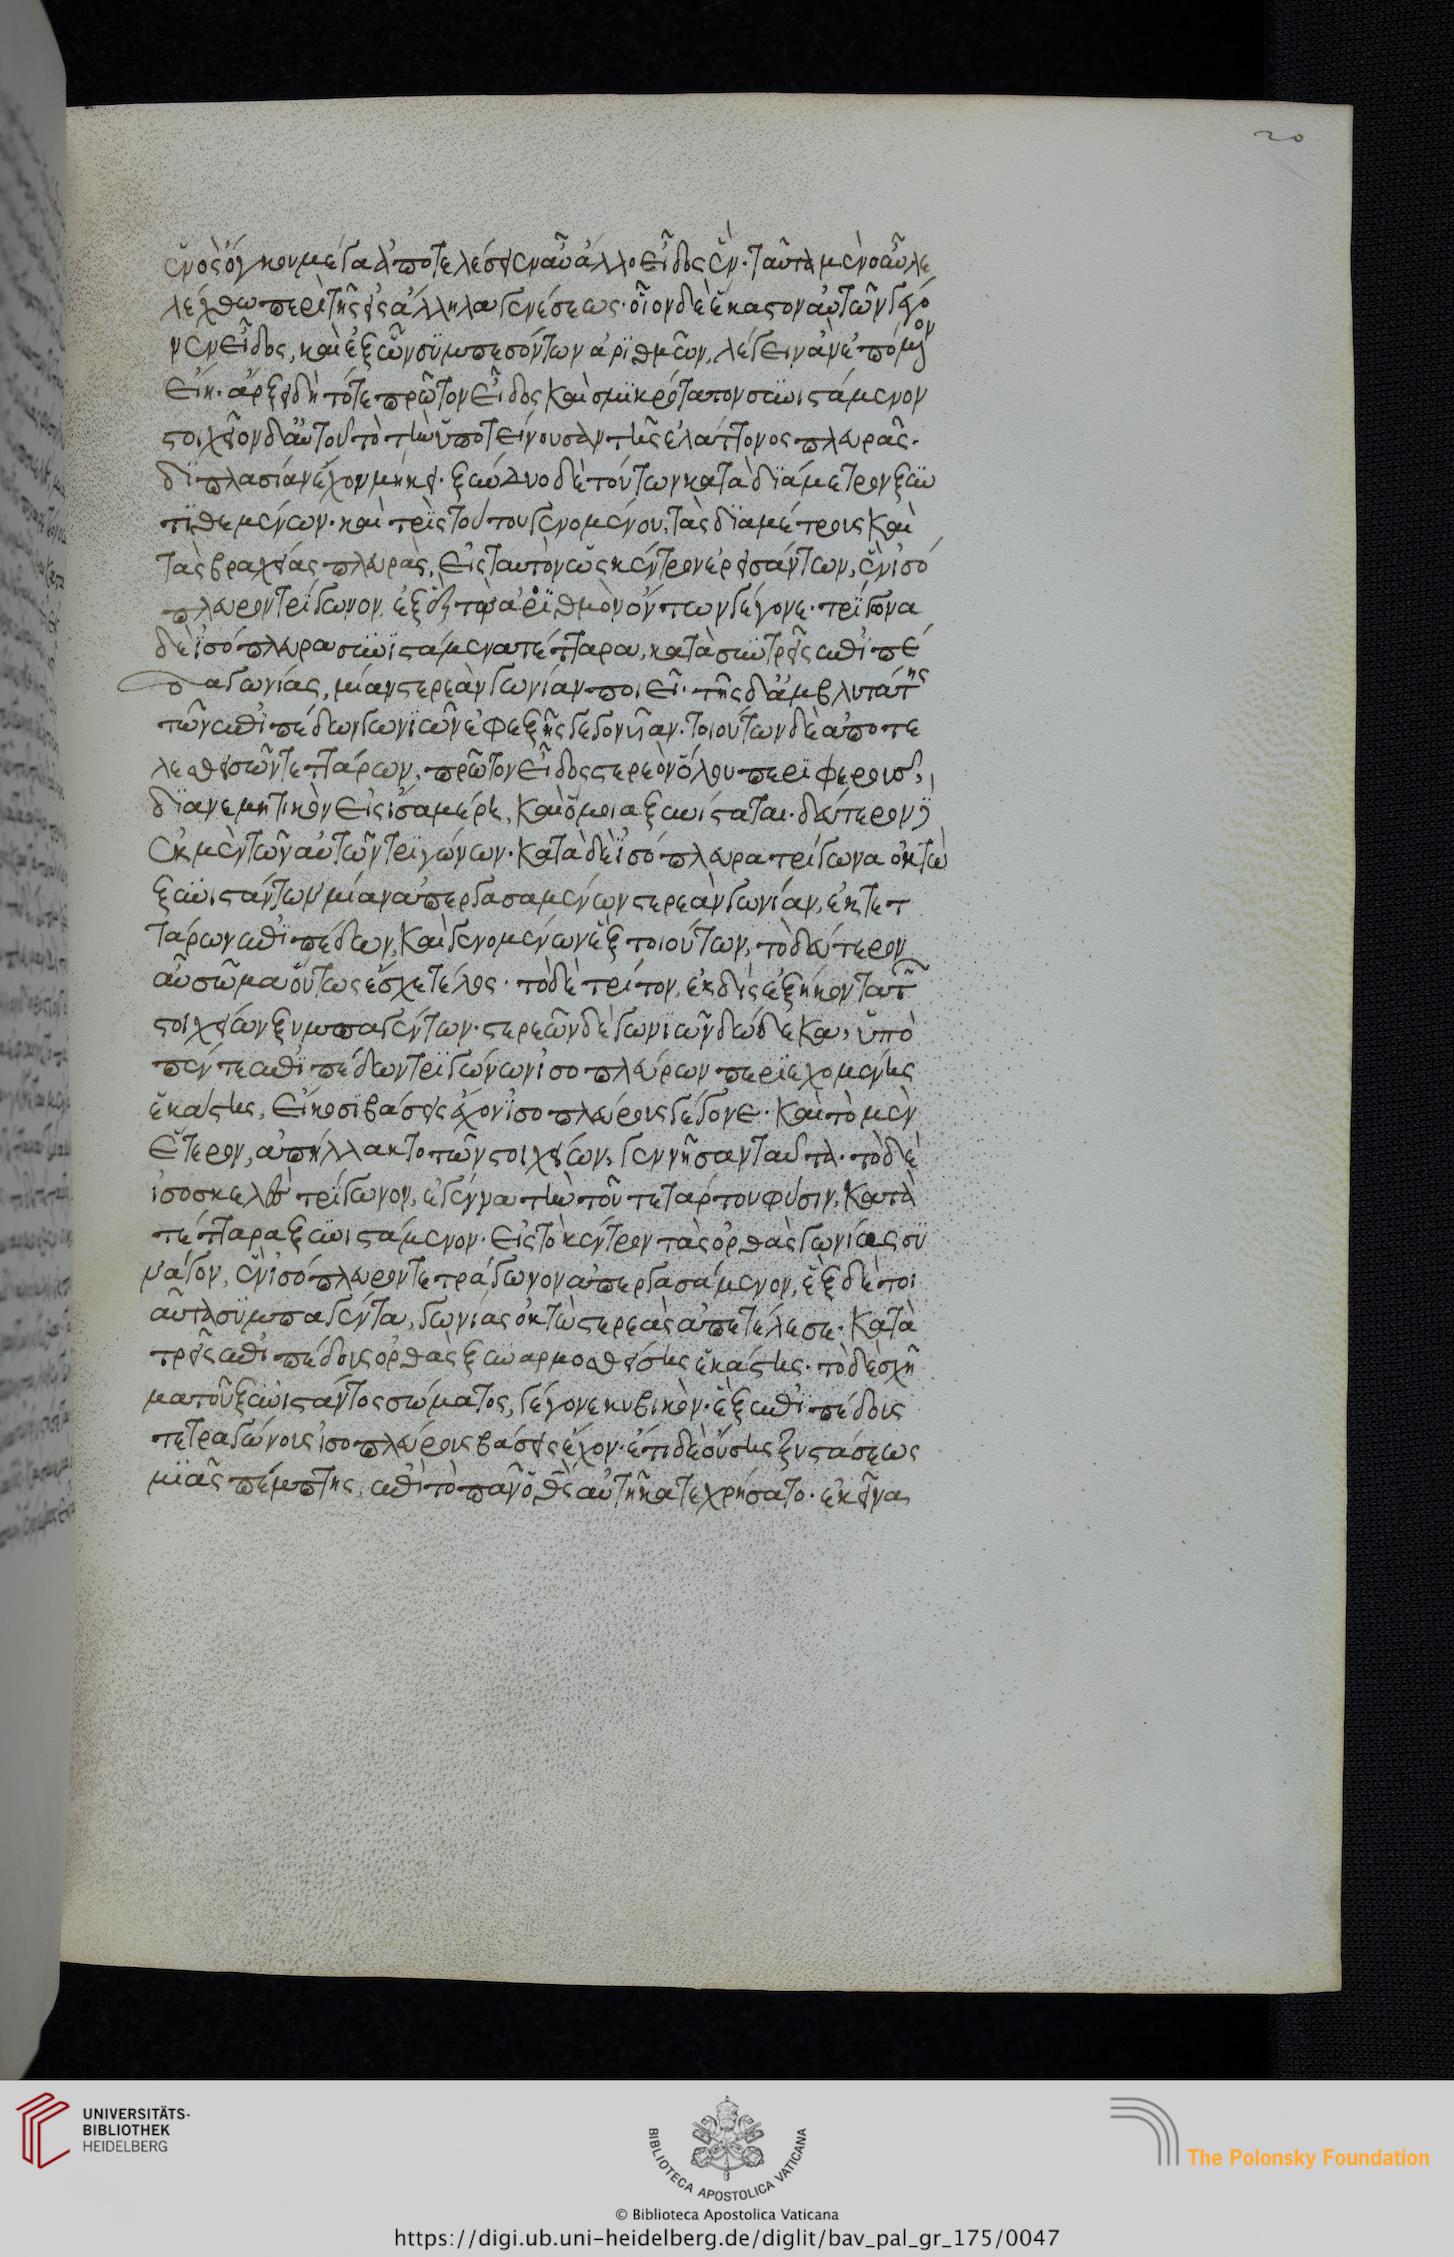 ἑνὸς ὄγκου μέγα ἀποτελέσειεν ἂν ἄλλο εἶδος ἕν. ταῦτα μὲν οὖν λε
λέχθω περὶ τῆς εἰς ἄλληλα γενέσεως· οἷον δὲ ἕκαστον αὐτῶν γεγό
νεν εἶδος, καὶ ἐξ ὧν συμπεσόντων ἀριθμῶν, λέγειν ἂν ἑπόμενον
εἴη. ἄρξει δὴ τό τε πρῶτον εἶδος καὶ σμικρότατον συνιστάμενον
στοιχεῖον δ' αὐτοῦ τὸ τὴν ὑποτείνουσαν τῆς ἐλάττονος πλευρᾶς.
διπλασίαν ἔχον μήκει. ξύνδυο δὲ τούτων κατὰ διάμετρον ξυν
τιθεμένων· καὶ τρὶς τούτου γενομένου, τὰς διαμέτρους καὶ
τὰς βραχείας πλευρὰς, εἰς ταυτὸν ὡς κέντρον ἐρεισάντων, ἓν ἰσό
πλευρον τρίγωνον ἐξ ἓξ τὸν ἀριθμὸν ὄντων γέγονε. τρίγωνα
δὲ ἰσόπλευρα συνιστάμενα τέτταρα, κατὰ σύντρεις ἐπιπέ
δα γωνίας, μίαν στερεὰν γωνίαν ποιεῖ· τῆς δ' ἀμβλυτάτης
τῶν ἐπιπέδων γωνιῶν ἐφεξῆς γεγονυῖαν. τοιούτων δὲ ἀποτε
λεσθεισῶν τεττάρων, πρῶτον εἶδος στερεὸν ὅλου περιφεροῦς,
διανεμητικὸν εἰς ἴσα μέρη, καὶ ὅμοια ξυνίσταται. δεύτερον
ἐκ μὲν τῶν αὐτῶν τριγώνων. κατὰ δὲ ἰσόπλευρα τρίγωνα ὀκτὼ
ξυνιστάντων μίαν ἀπεργασαμένων στερεὰν γωνίαν, ἐκ τετ
τάρων ἐπιπέδων, καὶ γενομένων ἓξ τοιούτων, τὸ δεύτερον
αὖ σῶμα οὕτως ἔσχε τέλος. τὸ δὲ τρίτον, ἐκ δὶς ἑξήκοντα τῶν
στοιχείων ξυμπαγέντων. στερεῶν δὲ γωνιῶν δώδεκα, ὑπὸ
πέντε ἐπιπέδων τριγώνων ἰσοπλεύρων περιεχομένης
ἑκάστης, εἴκοσι βάσεις ἔχον ἰσοπλεύρους γέγονε. καὶ τὸ μὲν
ἕτερον, ἀπήλλακτο τῶν στοιχείων, γεννῆσαν ταῦτα. τὸ δὲ
ἰσοσκελὲς τρίγωνον, ἐγέννα τὴν τοῦ τετάρτου φύσιν, κατὰ
τέτταρα ξυνιστάμενον. εἰς τὸ κέντρον τὰς ὀρθὰς γωνίας συ
νάγον, ἓν ἰσόπλευρον τετράγωνον ἀπεργασάμενον, ἓξ δὲ τοι
αῦτα συμπαγέντα, γωνίας ὀκτὼ στερεὰς ἀπετέλεσε. κατὰ
τρεῖς ἐπιπέδους ὀρθὰς ξυναρμοσθείσης ἑκάστης. τὸ δὲ σχῆ
μα τοῦ ξυνιστάντος σώματος, γέγονε κυβικὸν. ἓξ ἐπιπέδους
τετραγώνους ἰσοπλεύρους βάσεις ἔχον. ἔτι δὲ οὔσης ξυστάσεως
μιᾶς πέμπτης, ἐπὶ τὸ πᾶν ὁ θεὸς αὐτῇ κατεχρήσατο. ἐκεῖνα
20
UNIVERSITÄTS-
BIBLIOTHEK
HEIDELBERG
BIBLIOTECA APOSTOLICA VATICANA
The Polonsky Foundation
© Biblioteca Apostolica Vaticana
https://digi.ub.uni-heidelberg.de/diglit/bav_pal_gr_175/0047